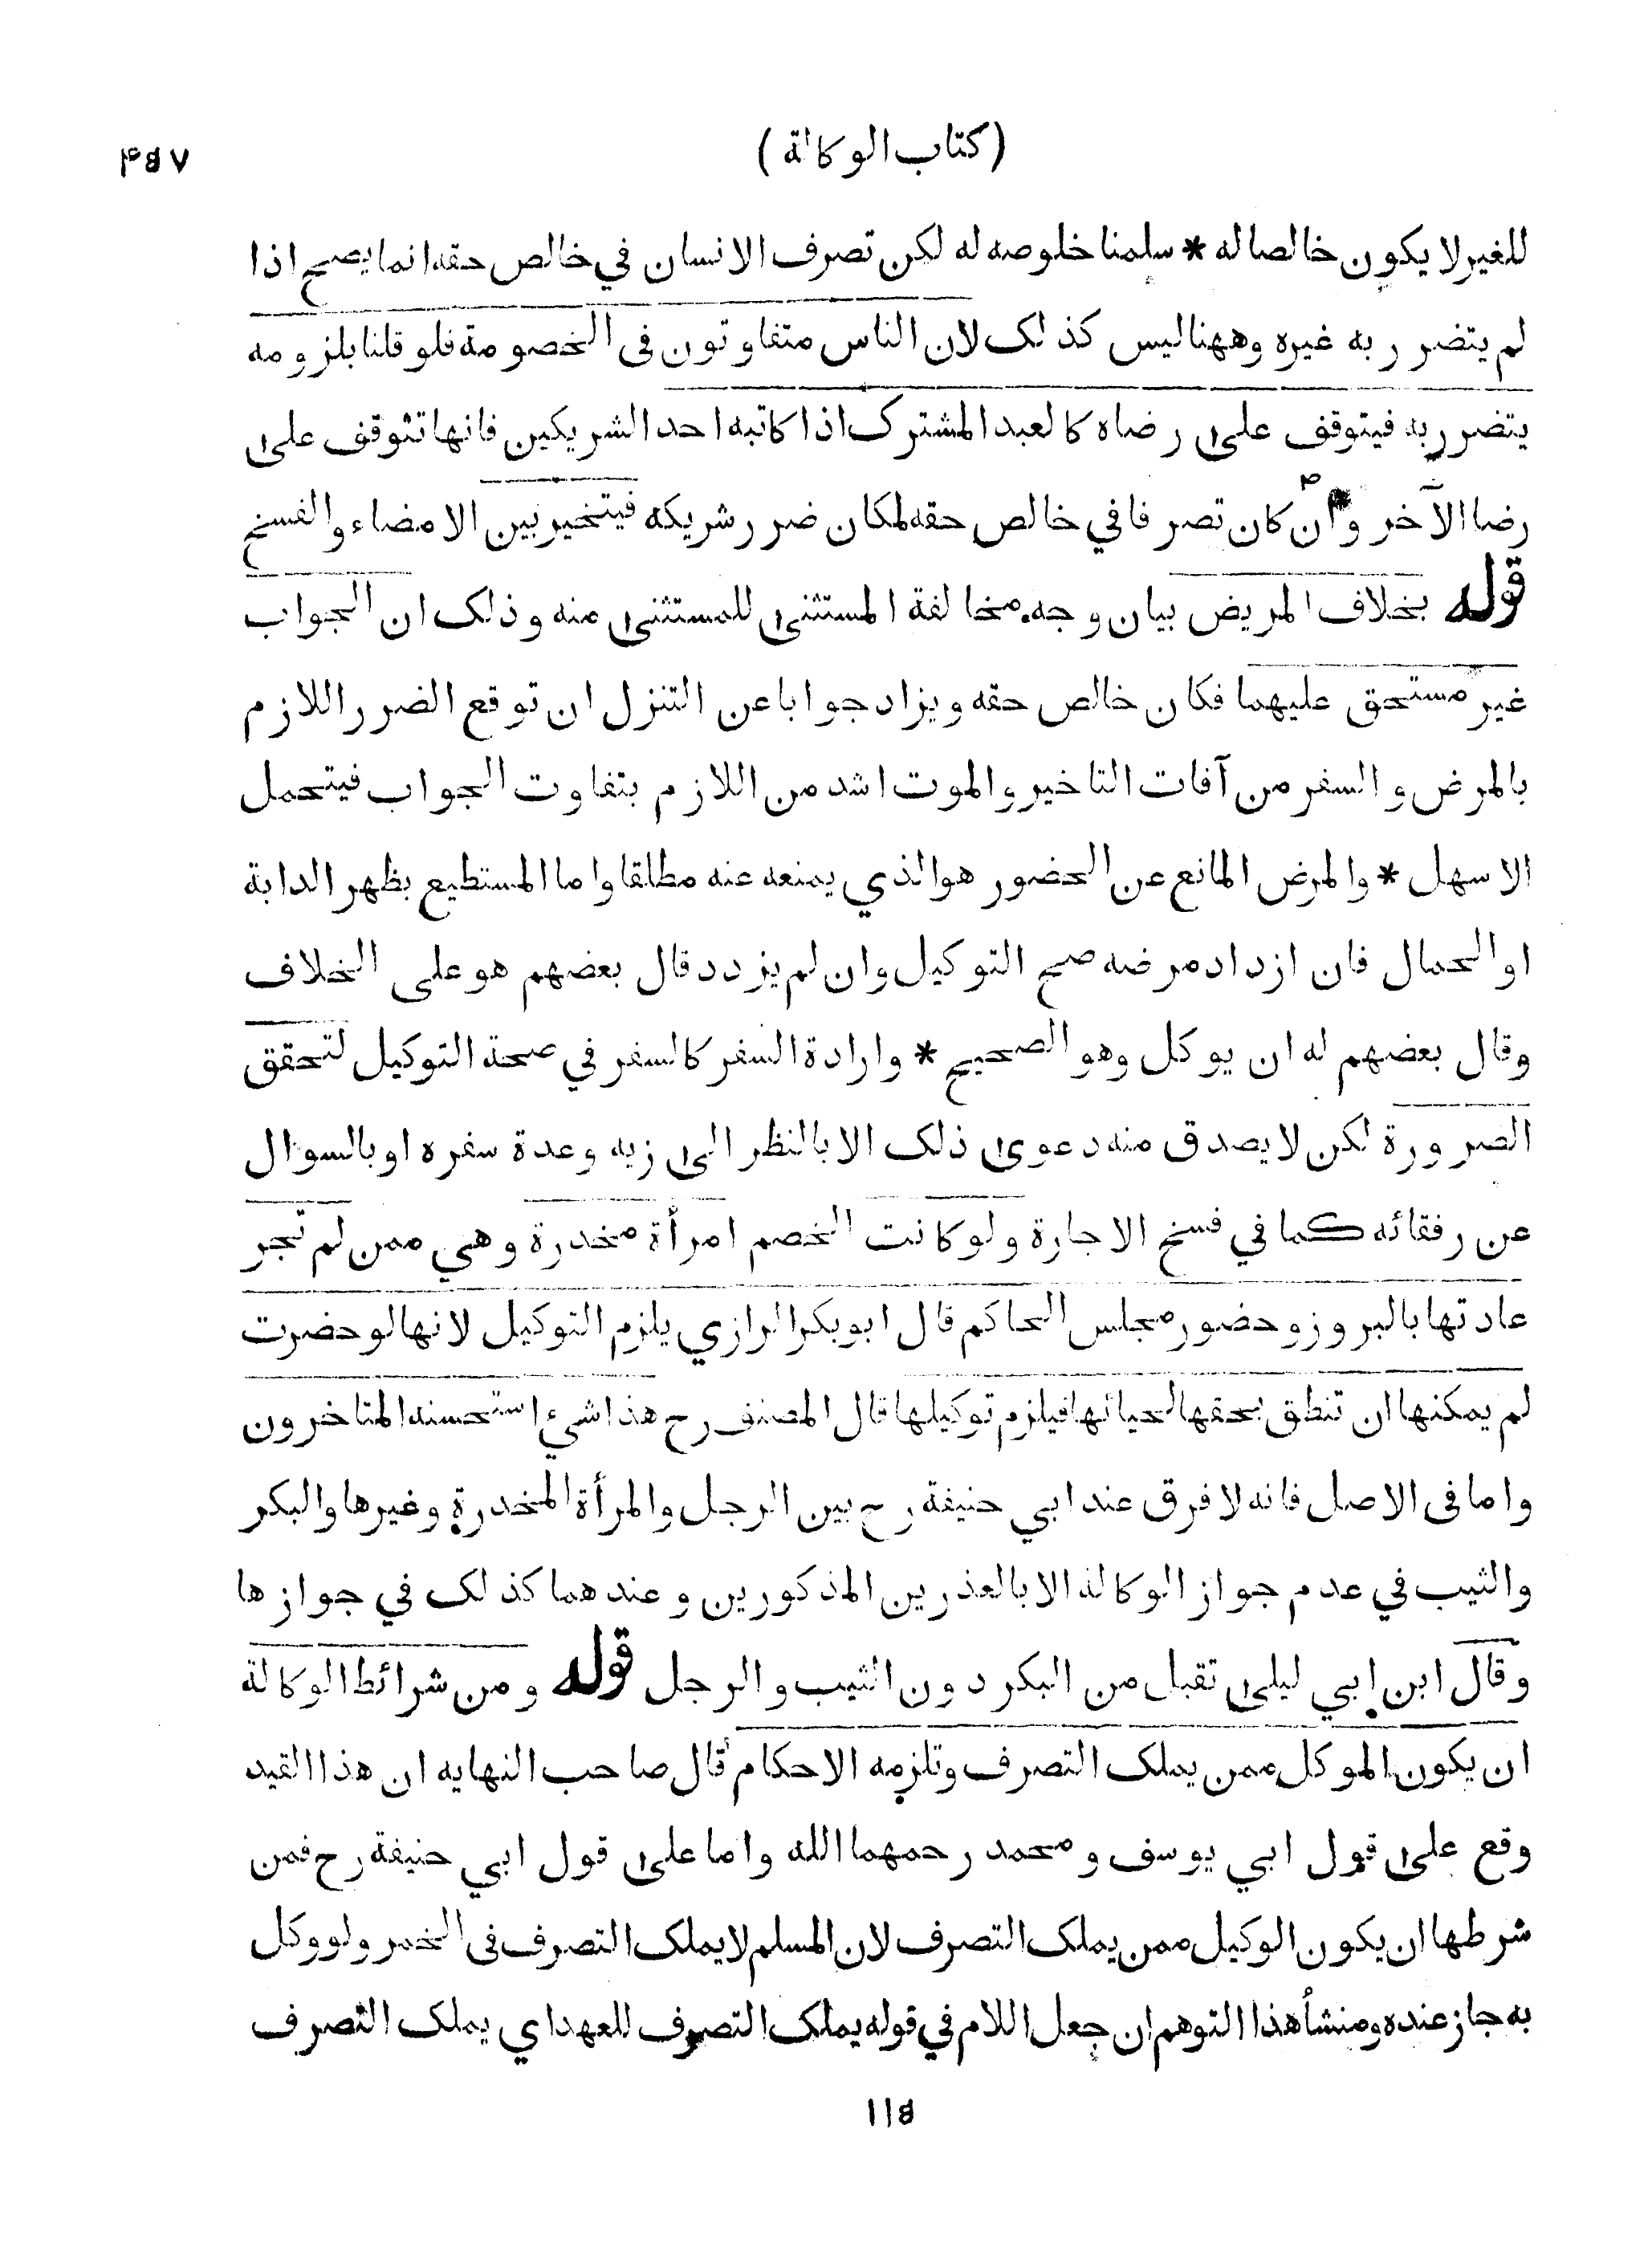 (كتاب الوكالة)
۴۵۷
للغير لا يكون خالصا له * سلمنا خلوصه له لكن تصرف الانسان في خالص حقه انما يصح اذا
لم يتضرر به غيره وههنا ليس كذلك لان الناس متفاوتون فى الخصومة فلو قلنا بلزومه
يتضرر به فيتوقف على رضاه كالعبد المشترك اذا كاتبه احد الشريكين فانها تتوقف على
رضا الآخر وان كان تصرفا في خالص حقه لمكان ضرر شريكه فيتخير بين الامضاء والفسخ
قوله بخلاف المريض بيان وجه مخالفة المستثنى للمستثنى منه وذلك ان الجواب
غير مستحق عليهما فكان خالص حقه ويزاد جوابا عن التنزل ان توقع الضرر اللازم
بالمرض والسفر من آفات التاخير والموت اشد من اللازم بتفاوت الجواب فيتحمل
الاسهل * والمرض المانع عن الحضور هو الذي يمنعه عنه مطلقا واما المستطيع بظهر الدابة
او الحمال فان ازداد مرضه صح التوكيل وان لم يزدد قال بعضهم هو على الخلاف
وقال بعضهم له ان يوكل وهو الصحيح * وارادة السفر كالسفر في صحة التوكيل لتحقق
الضرورة لكن لا يصدق منه دعوى ذلك الا بالنظر الى زيه وعدة سفره او بالسوال
عن رفقائه كما في فسخ الاجارة ولو كانت الخصم امرأة مخدرة وهي ممن لم تجر
عادتها بالبروز وحضور مجلس الحاكم قال ابو بكر الرازي يلزم التوكيل لانها لو حضرت
لم يمكنها ان تنطق بحقها لحيائها فيلزم توكيلها قال المصنف رح هذا شيء استحسنه المتاخرون
واما فى الاصل فانه لا فرق عند ابي حنيفة رح بين الرجل والمرأة المخدرة وغيرها والبكر
والثيب في عدم جواز الوكالة الا بالعذرين المذكورين وعندهما كذلك في جوازها
وقال ابن ابي ليلى تقبل من البكر دون الثيب والرجل قوله ومن شرائط الوكالة
ان يكون الموكل ممن يملك التصرف وتلزمه الاحكام قال صاحب النهايه ان هذا القيد
وقع على قول ابي يوسف ومحمد رحمهما الله واما على قول ابي حنيفة رح فمن
شرطها ان يكون الوكيل ممن يملك التصرف لان المسلم لا يملك التصرف فى الخمر ولو وكل
به جاز عنده ومنشأ هذا التوهم ان جعل اللام في قوله يملك التصرف للعهد اي يملك التصرف
۱۱۵